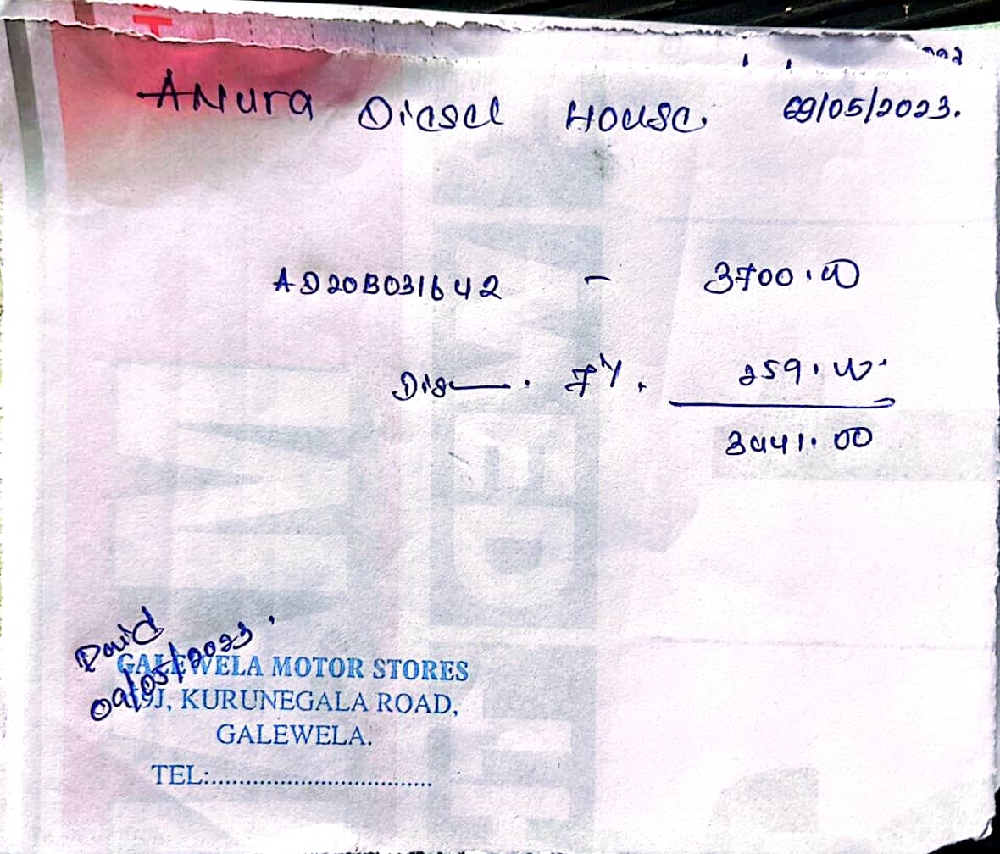 Anura Diesel House. 09/05/2023.
AD20B031642 - 3700.00
Dis——. 7%. 259.00
3441.00
Paid
09/05/2023.
GALEWELA MOTOR STORES
9J, KURUNEGALA ROAD,
GALEWELA.
TEL:..................................